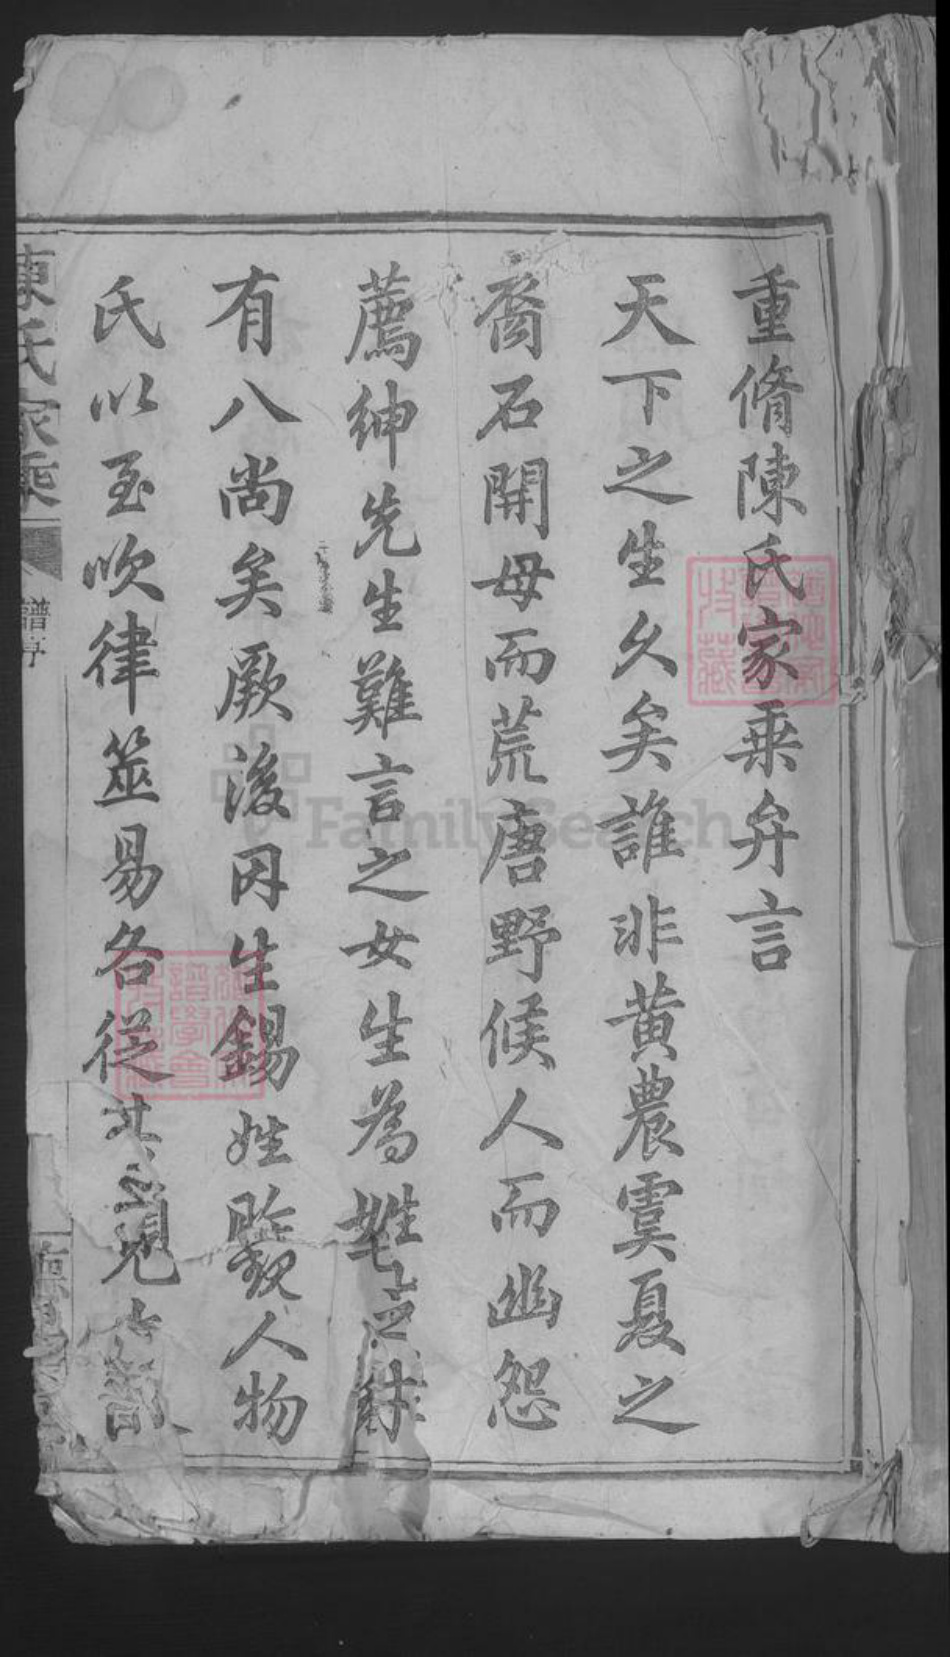 重脩陳氏家乗弁言
天下之生久矣誰非黄農虞夏之
裔石開母而荒唐野候人而幽怨
薦紳先生難言之女生為姓
有八尚矣厥後因生錫姓人物
氏以至吹律筮易各従其
陳氏家乗
譜序
FamilySearch